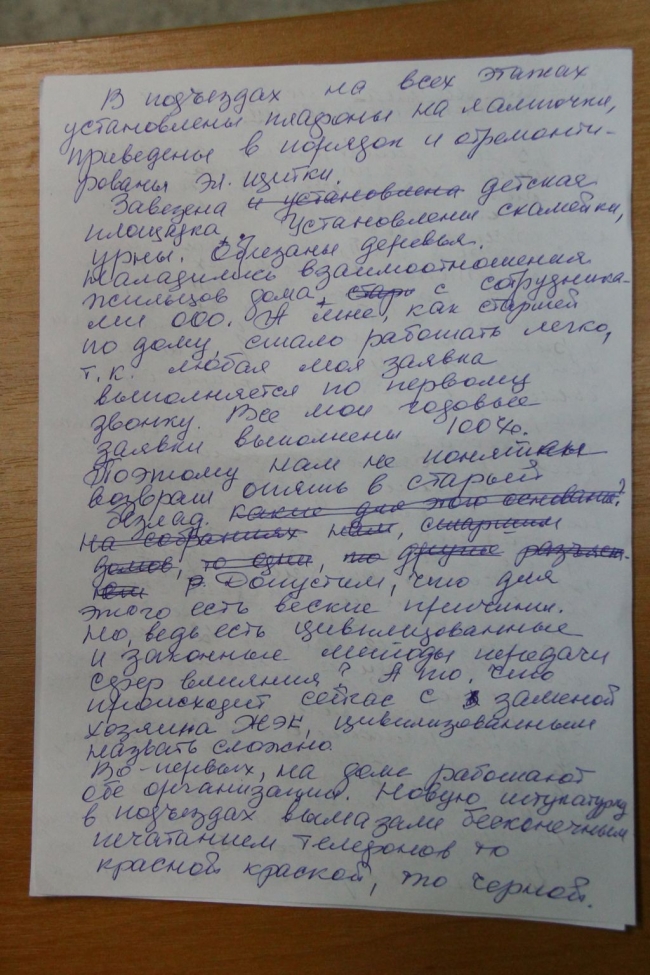 В подъездах на всех этажах
установлены плафоны на лампочки,
приведены в порядок и отремонти-
рованы эл. щитки.
Завезена и установлена детская
площадка, установлены скамейки,
урны. Обрезаны деревья.
Наладились взаимоотношения
жильцов дома, стар с сотрудника-
ми ООО. А мне, как старшей
по дому, стало работать легко,
т.к. любая моя заявка
выполняется по первому
звонку. Все мои годовые
заявки выполнены 100%.
Поэтому нам не понятны
возврат опять в старый
безлад. какие для этого основания?
на собраниях нам, старшим
домов, то одни, то другие разъясн.
Допустим, что для
этого есть веские причины.
Но, ведь есть цивилизованные
и законные методы передачи
сфер влияния? А то, что
происходит сейчас с заменой
хозяина ЖЭК, цивилизованным
назвать сложно
Во-первых, на доме работают
обе организации. Новую штукатурку
в подъездах вымазали бесконечным
печатанием телефонов то
красной краской, то черной.